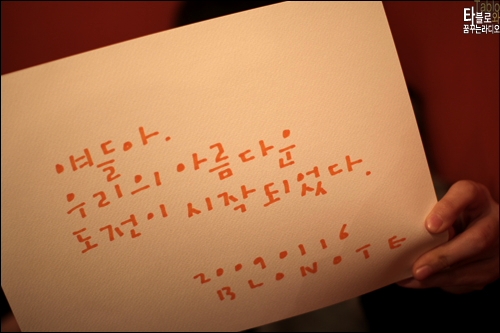 Tablo
타블로와
꿈꾸는라디오
얘들아.
우리의 아름다운
도전이 시작 되었다.
20090116
BLONOTE